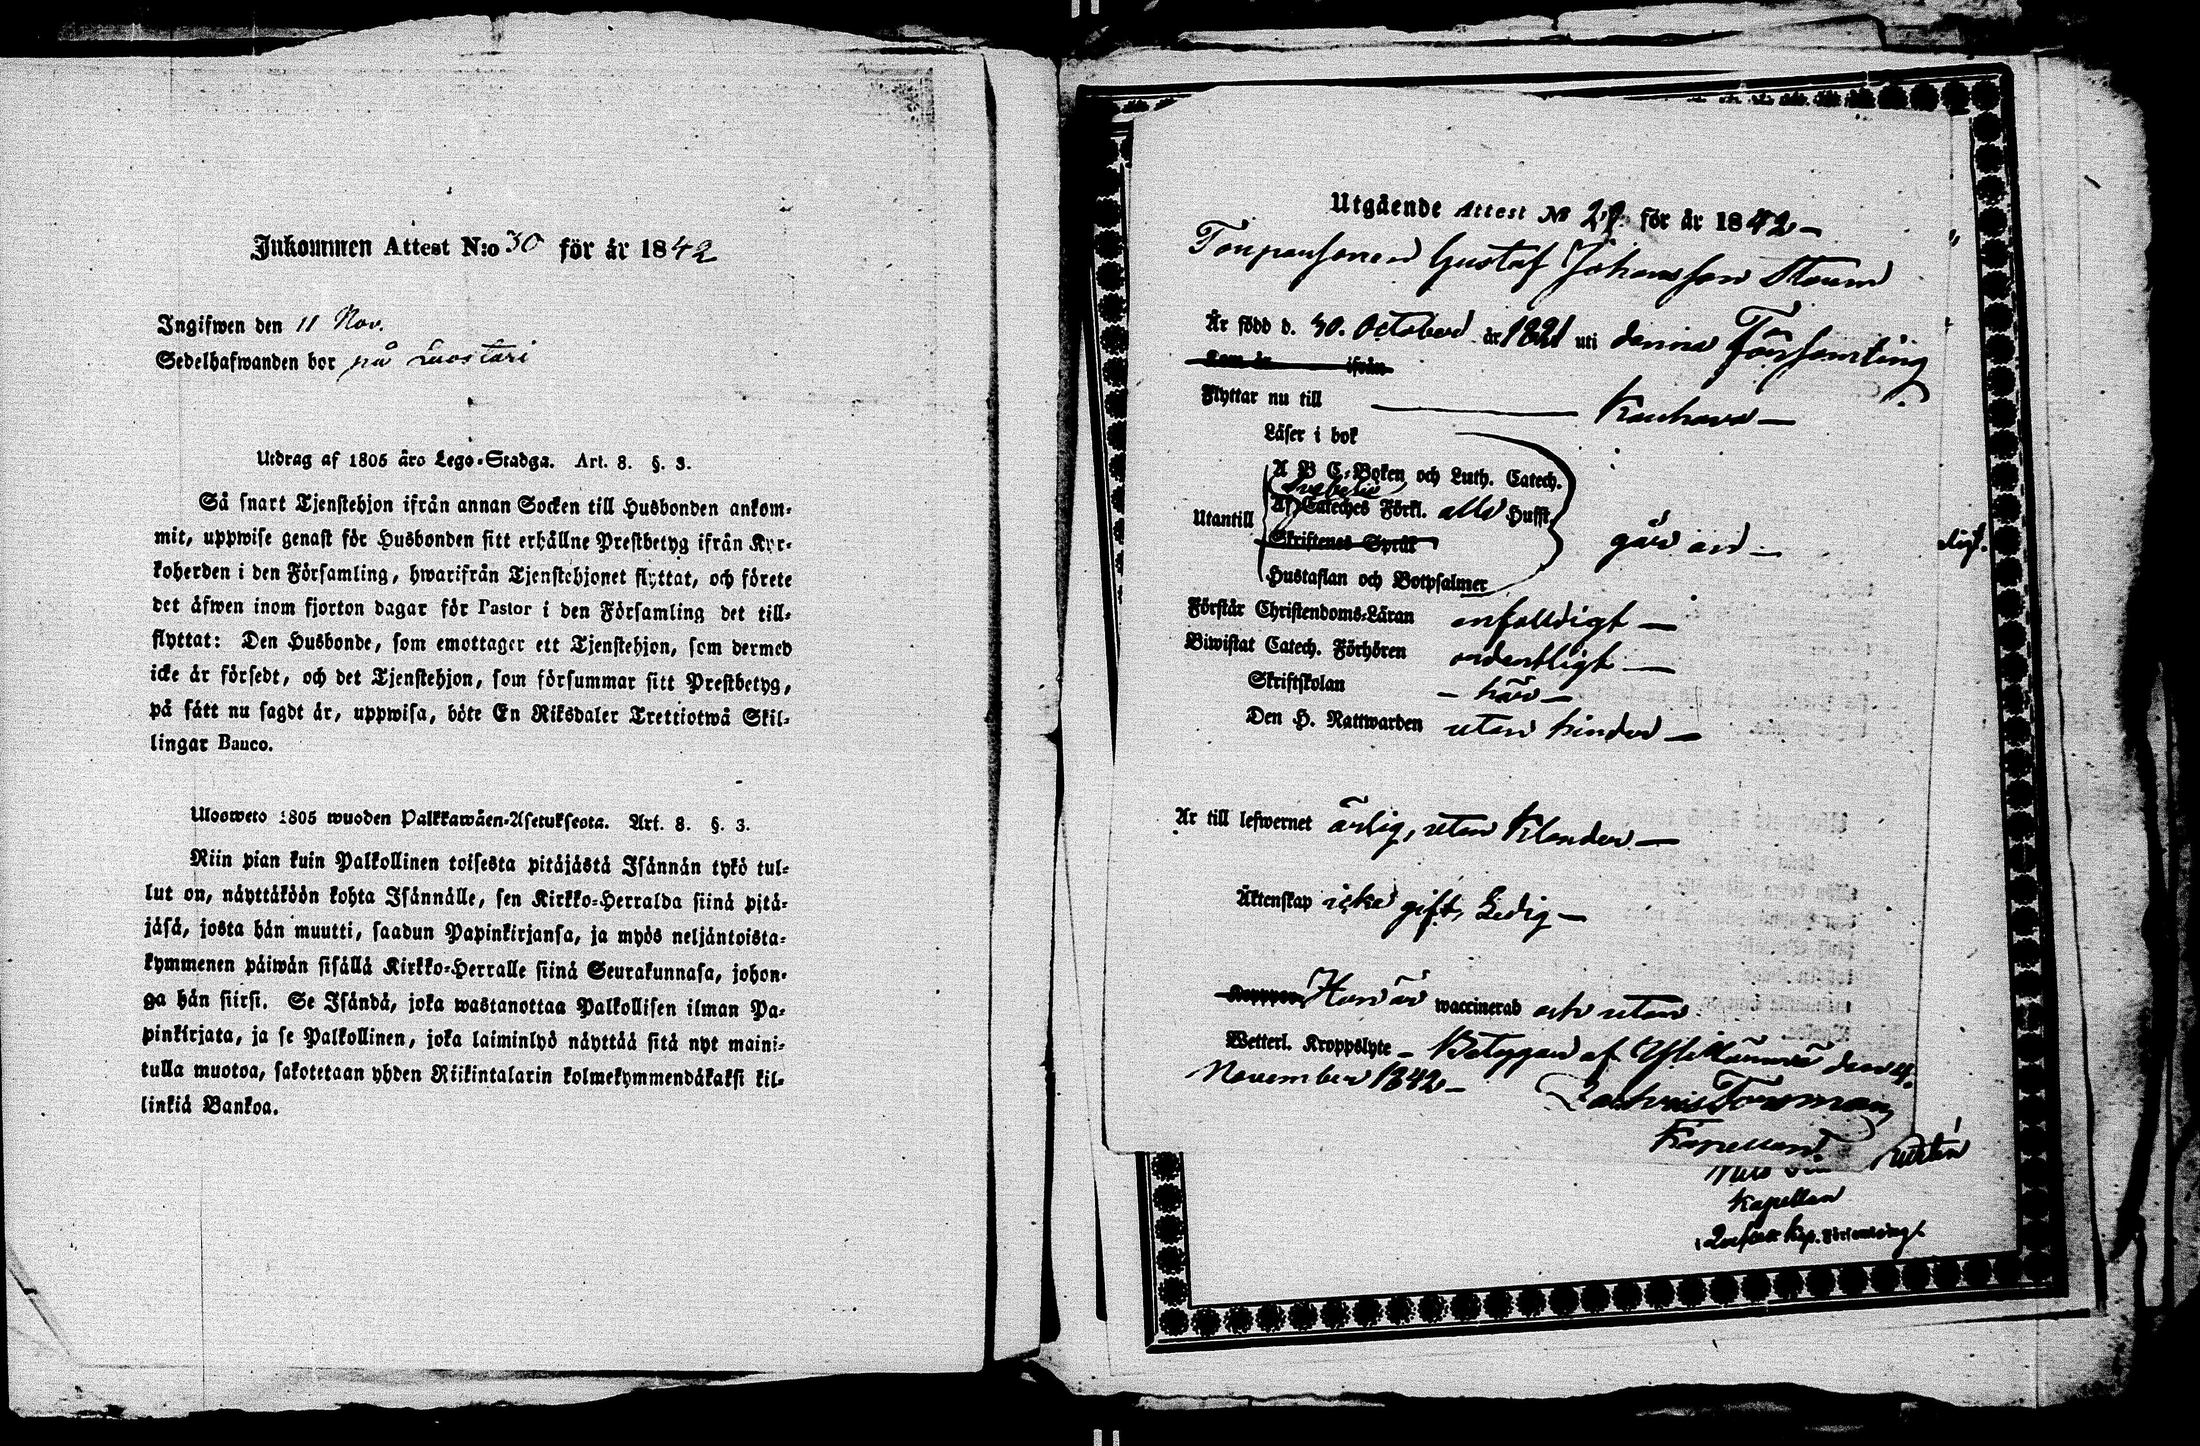 Inkommen Attest N:o 30 för år 1842
Ingifwen den 11 Nov.
Sedelhafwanden bor på Luostari
Utdrag af 1805 års Lego-Stadga. Art. 8. §. 3.
Så snart Tjenstehjon ifrån annan Socken till Husbonden ankom-
mit, uppwise genast för Husbonden sitt erhållne Prestbetyg ifrån Kyr-
koherden i den Församling, hwarifrån Tjenstehjonet flyttat, och förete
det äfwen inom fjorton dagar för Pastor i den Församling det till-
flyttat: Den Husbonde, som emottager ett Tjenstehjon, som dermed
icke är försedt, och det Tjenstehjon, som försummar sitt Prestbetyg,
på sätt nu sagdt är, uppwisa, böte En Riksdaler Trettiotwå Skil-
lingar Banco.
Ulosweto 1805 wuoden Palkkawäen-Asetuksesta. Art. 8. §. 3.
Niin pian kuin Palkollinen toisesta pitäjästä Isännän tykö tul-
lut on, näyttäköön kohta Isännälle, sen Kirkko-Herralda siinä pitä-
jäsä, josta hän muutti, saadun Papinkirjansa, ja myös neljäntoista-
kymmenen päiwän sisällä Kirkko-Herralle siinä Seurakunnasa, johon-
ga hän siirsi. Se Isändä, joka wastanottaa Palkollisen ilman Pa-
pinkirjata, ja se Palkollinen, joka laiminlyö näyttää sitä nyt maini-
tulla muotoa, sakotetaan yhden Riikintalarin kolmekymmendäkaksi kil-
linkiä Bankoa.
Utgående Attest № för år 1842
Gustaf Johansson
Är född d. 30. October år 1821 uti denna Församling
Kom år ifrån
Flyttar nu till Kauhava
Läser i bok
A B C-Boken och Luth. Catech.
Svebelii
Utantill Cateches Förkl. alla Hufst.
Skriftenes Språk
går an
ligt.
Hustaflan och Botpsalmer
Förstår Christendoms-Läran enfaldigt
Biwistat Catech. Förhören ordentligt
Skriftskolan här
Den H. Nattwarden utan hinder
Är till lefwernet ärlig, utan klander
Äktenskap icke gift, Ledig
Koppor Han är waccinerad och utan
Wetterl. Kroppslyte Betygar af Ylikannus den 4.
November 1842
Zachris Forsman
Kapellan
Kapellan
Kap. Församling